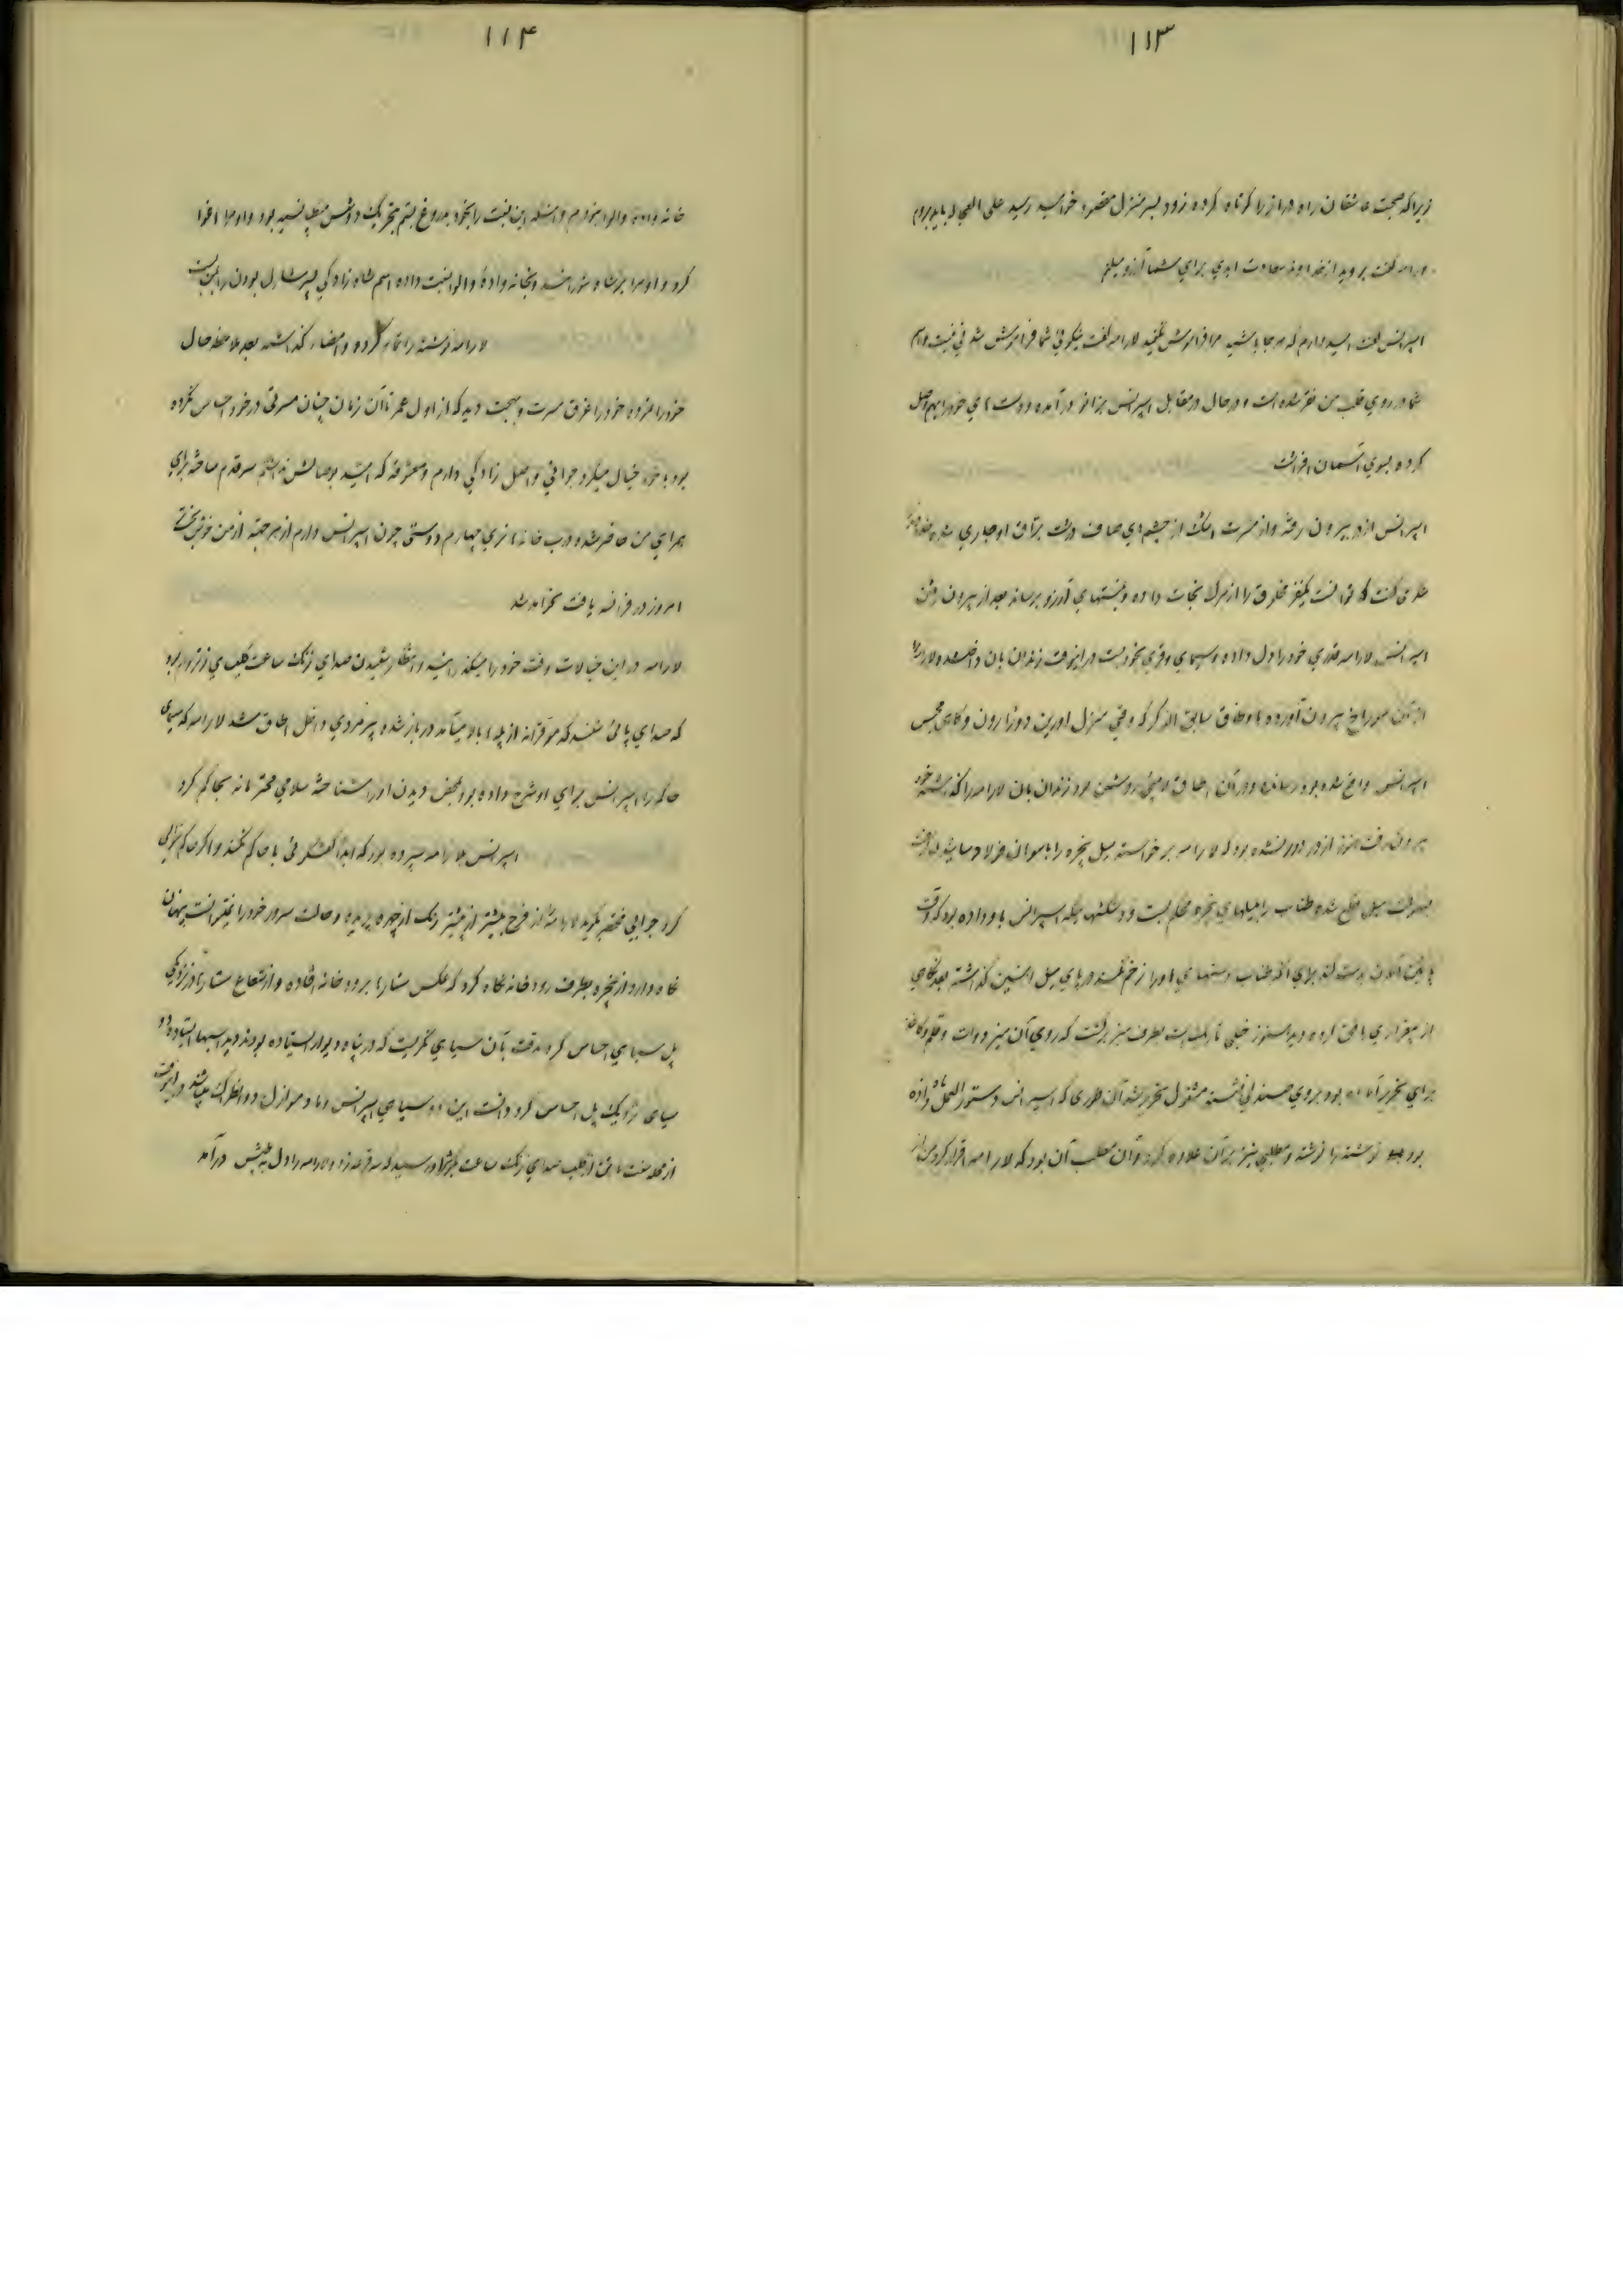 ۱۱۳
زیرا که صحبت عاشقان راه دراز را کوتاه کرده زود بسر منزل مقصود خواهید رسید علی العجاله باید بروم
لارامه گفت بروید از خداوند سعادت ابدی برای شما آرزو میکنم
اسپرانس گفت امیدوارم که هر جا باشید مرا فراموش نکنید لارامه گفت نیکوئی شما فراموش شدنی نیست و اسم
شما در روی قلب من نقر شده است و در حال در مقابل اسپرانس بزانو درآمده و دست های خود را بهم وصل
کرده بسوی آسمان افراشت
اسپرانس از در بیرون رفته و از مسرت اشک از چشم های صاف درشت براق او جاری شده
که توانست یکنفر مخلوق را از مرگ نجات داده و بمنتهای آرزو برساند بعد از بیرون رفتن
اسپرانس لارامه قدری خود را دل داده و سیمای وقری بخود بست در اینوقت زندان بان داخل شده لارامه را
از آن سوراخ بیرون آورده باوطاق سابق الذکر که وقتی منزل اورین دوژارون و گاهی محبس
اسپرانس واقع شده بود رسانده و در آن اطاق لامپی روشن بود زندان بان لارامه را گذاشته خود
بیرون رفت هنوز از در دور نشده بود که لارامه برخواسته میل پنجره را با سوهان فولاد سائید
بسهولت میل قطع شده طناب را بمیلهای پنجره محکم بست و دستکشهائیکه اسپرانس باو داده بود که وقت
پائین آمدن بدست کند برای آنکه طناب دستهای او را زخم نکند در پای میل آهنین گذاشته بعد نگاهی
از بیقراری بافق کرده دید هنوز خیلی تاریک است بطرف میز برگشت که روی آن میز دوات و قلم و کاغذ
برای تحریر آماده بود بروی صندلی نشسته مشغول تحریر شد آن طوری که اسپرانس دستورالعمل باو داده
بود نوشته را نوشته و مطلبی نیز بر آن علاوه کرد و آن مطلب آن بود که لارامه اقرار کرد من از
۱۱۴
خانه واده والوا نبودم و مسئله این نسبت را بخود بدروغ بستم بتحریک دوشس مونت پانسیه بود و او مرا اغوا
کرد و او مرا بر شاه شورانید و بخانه واده والوا نسبت داده اسم شاه زادگی پسر شارل بودن را بمن بست
لارامه نوشته را تمام کرده و امضاء گذاشته بعد ملاحظه حال
خود را نموده خود را غرق مسرت و بهجت دید که از اول عمر تا آن زمان چنان مسرتی در خود احساس نکرده
بود با خود خیال میکرد جوانی و اصل زادگی دارم و معشوقه که امید بوصالش نداشتم سر قدم ساخته برای
همراهی من حاضر شده و درب خانه هانری چهارم دوستی چون اسپرانس دارم از هر جهت از من خوش بخت تر
امروز در فرانسه یافت نخواهد شد
لارامه در این خیالات وقت خود را میگذرانید و انتظار شنیدن صدای زنگ ساعت کلیسای ژنژور بود
که صدای پائی شنید که موقرانه از پله ها بالا میآمد در باز شده پیرمردی داخل اطاق شد لارامه که سیمای
حاکم را اسپرانس برای او شرح داده بود بمحض دیدن او را شناخته سلامی محترمانه بحاکم کرد
اسپرانس بلارامه سپرده بود که ابداً گفتگوئی با حاکم نکند و اگر حاکم سؤالی
کرد جوابی مختصر بگوید لارامه از فرح بیشتر از پیشتر رنگ از چهره پریده و حالت سرور خود را نمیتوانست پنهان
نگاه دارد از پنجره بطرف رودخانه نگاه کرد که عکس ستاره ها برودخانه افتاده و از شعاع ستاره ها در نزدیکی
پل سیاهی احساس کرد بدقت بآن سیاهی نگریست که در پناه دیوار ایستاده بودند دید اسبها ایستاده و دو
سیاهی نزدیک پل احساس کرد دانست این دو سیاهی اسپرانس و مادموازل دو انتراک میباشند در اینوقت
از قلب صدای زنگ ساعت ژنژور رسید که سه قرعه زد و لارامه را دل بطپش درآمد